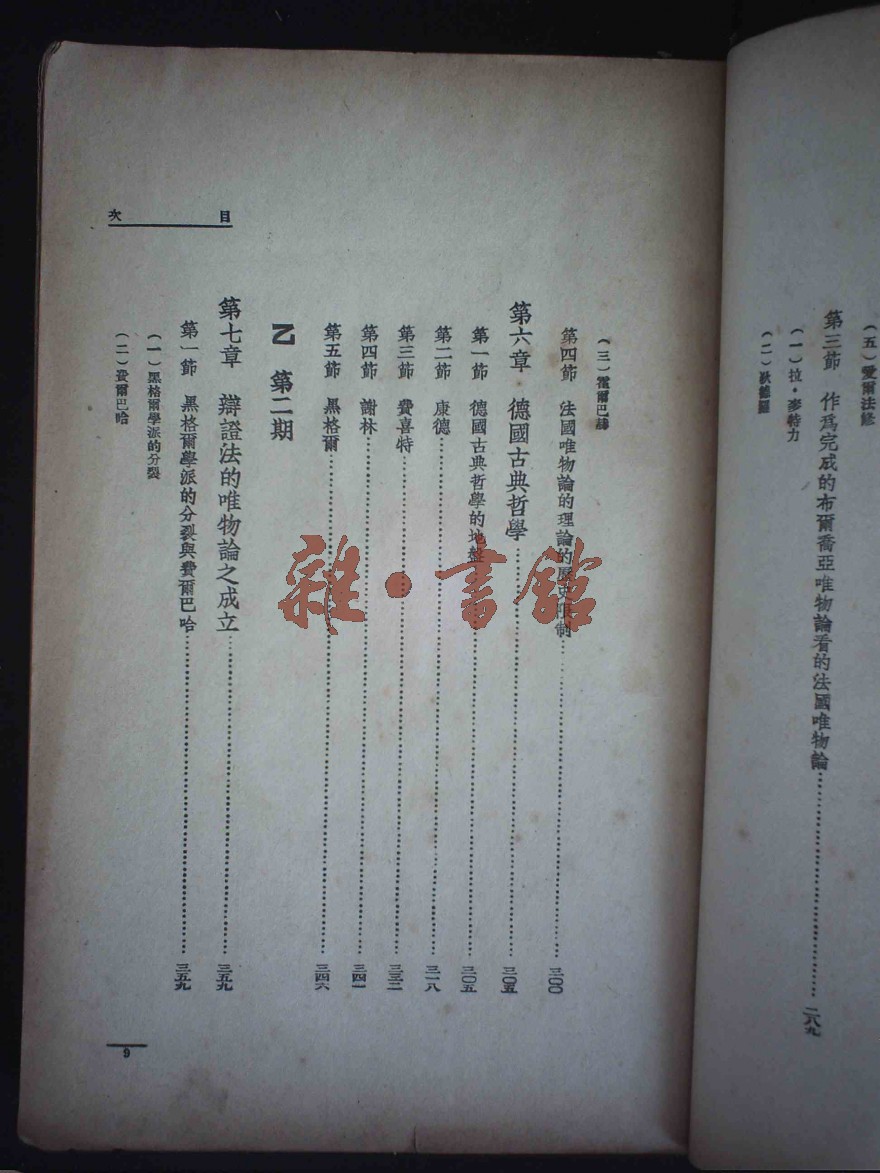 (五)愛爾法修
第三節 作爲完成的布爾喬亞唯物論看的法國唯物論……二八九
(一)拉・麥特力
(二)狄德羅
目次
(三)霍爾巴赫
第四節 法國唯物論的理論的歷史限制……三〇〇
第六章 德國古典哲學……三〇五
第一節 德國古典哲學的地盤……三〇五
第二節 康德……三一八
第三節 費喜特……三三二
第四節 謝林……三四一
第五節 黑格爾……三四六
乙 第二期
第七章 辯證法的唯物論之成立……三五九
第一節 黑格爾學派的分裂與費爾巴哈……三五九
(一)黑格爾學派的分裂
(二)費爾巴哈
9
雜・書館